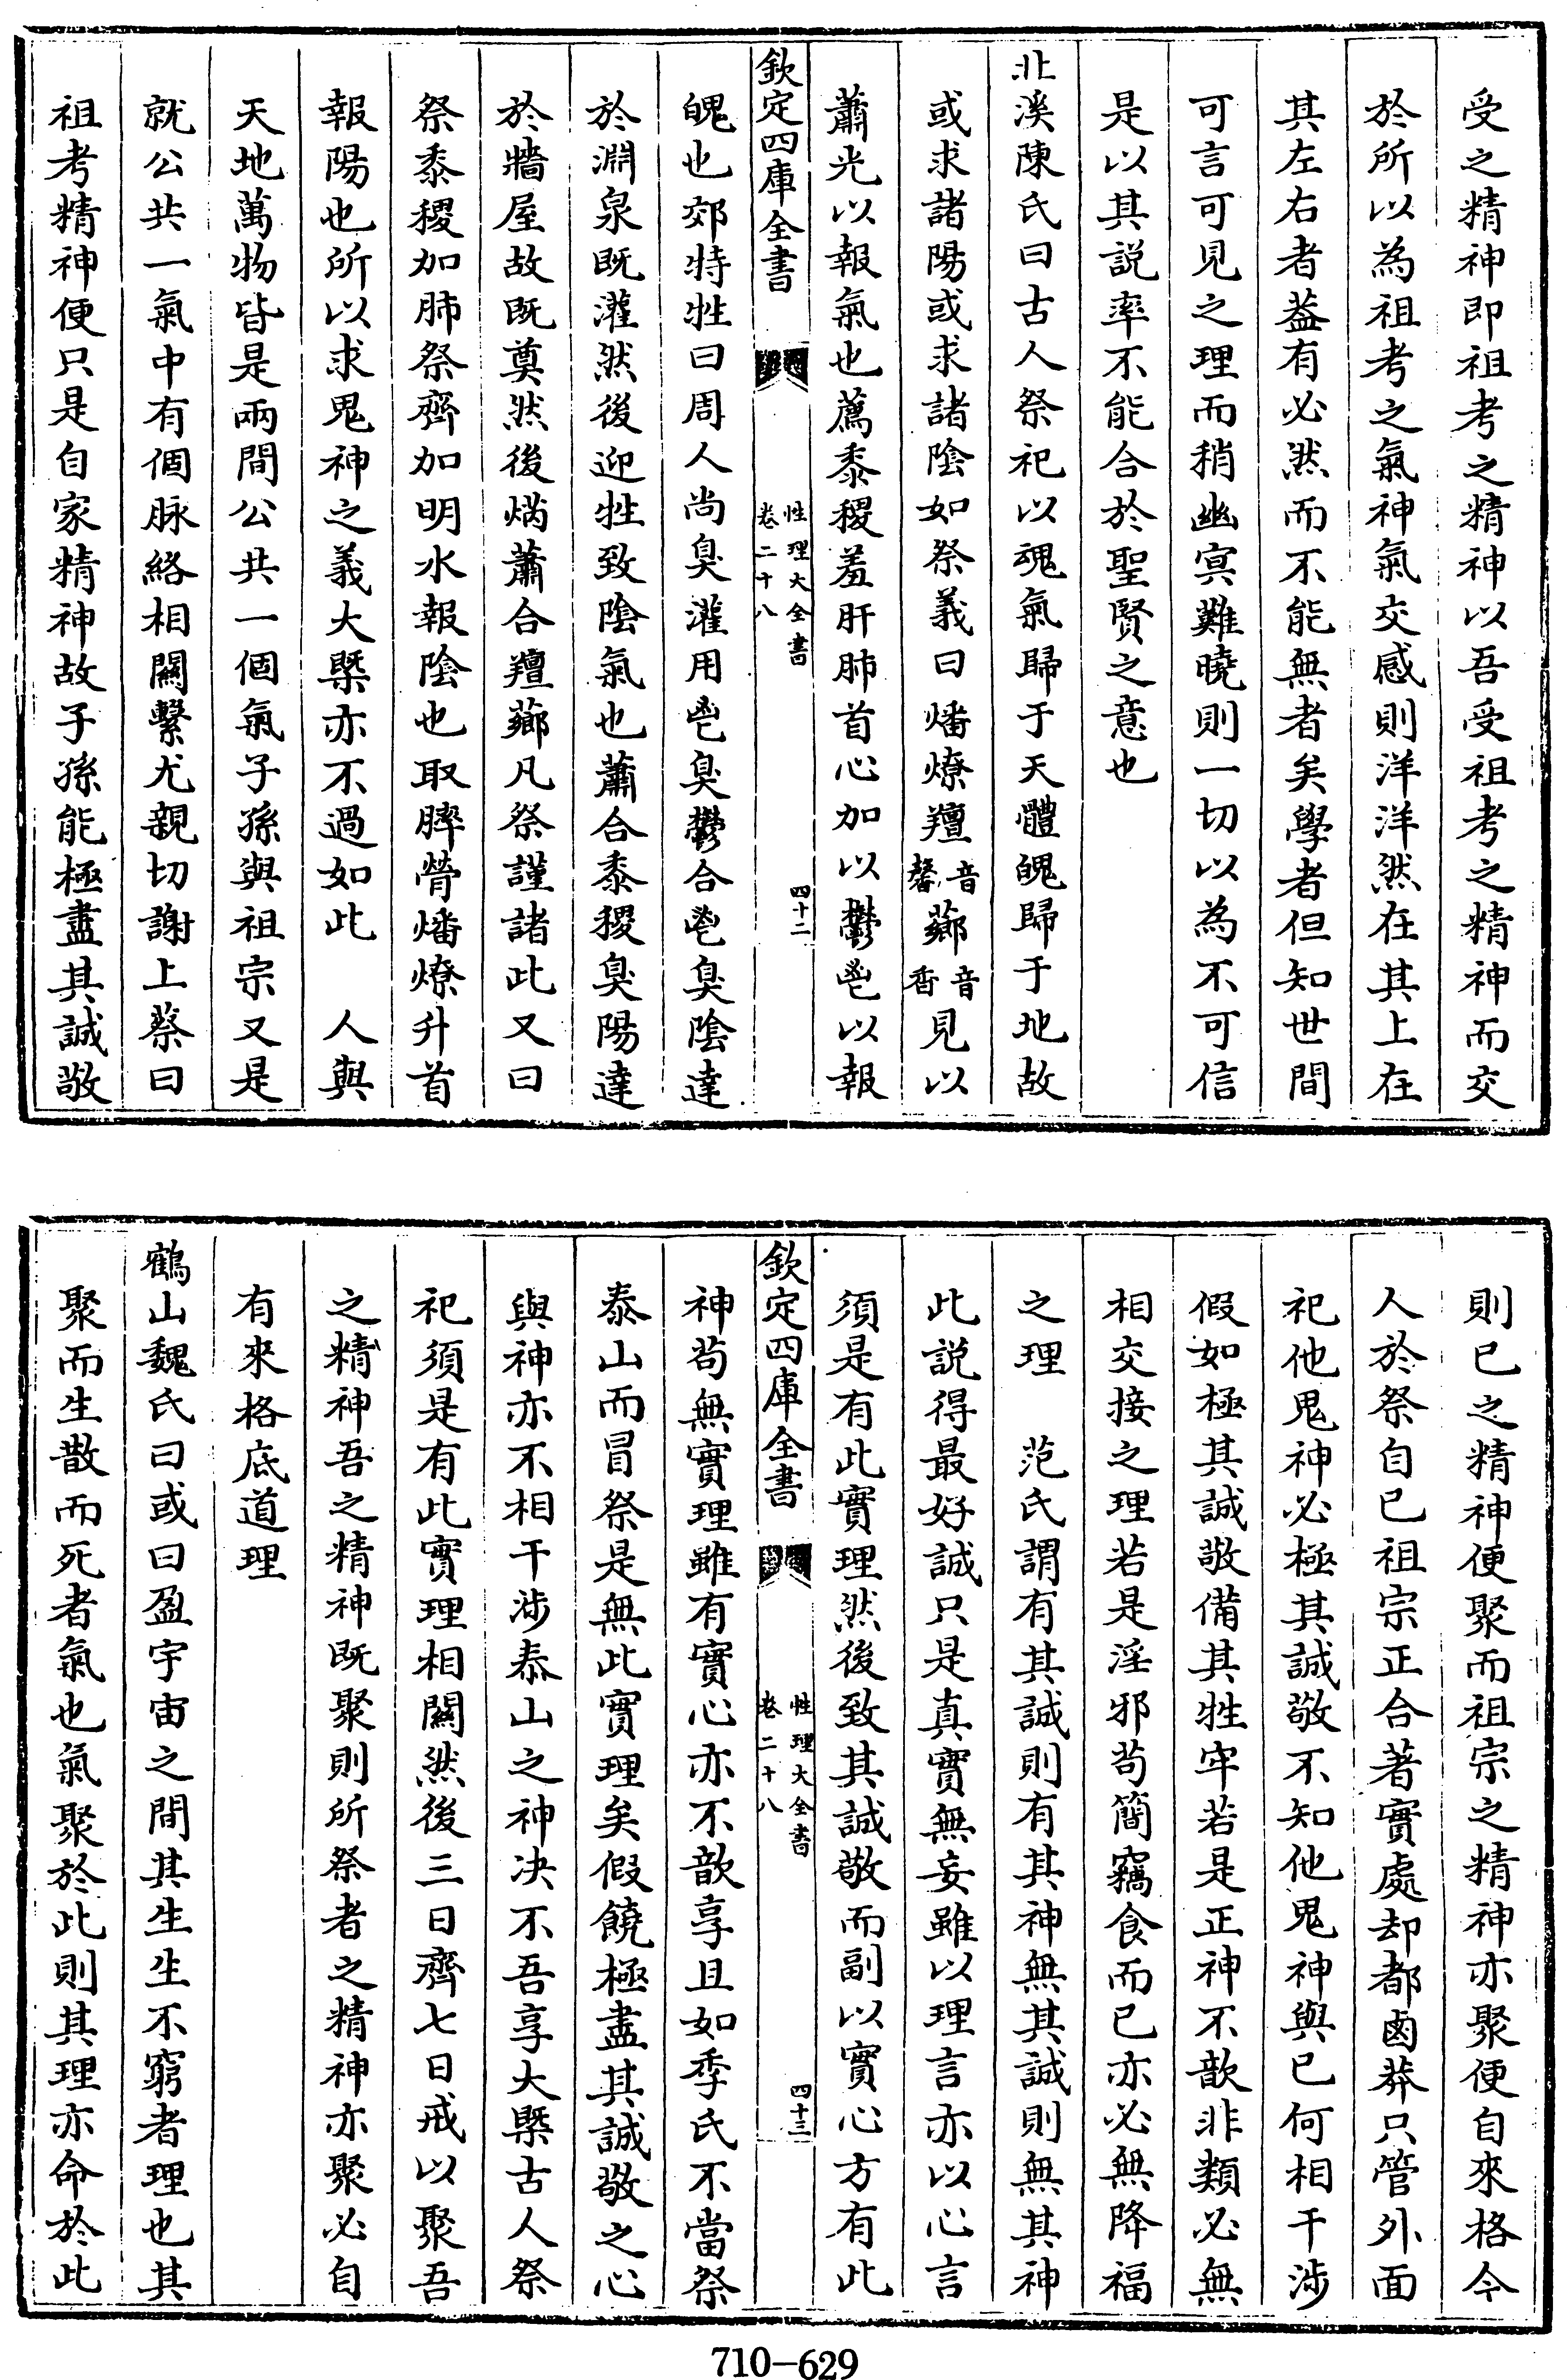 受之精神即祖考之精神以吾受祖考之精神而交
於所以為祖考之氣神氣交感則洋洋然在其上在
其左右者葢有必然而不能無者矣學者但知世間
可言可見之理而稍幽㝠難曉則一切以為不可信
是以其説率不能合於聖賢之意也
北溪陳氏曰古人祭祀以魂氣歸于天體魄歸于地故
或求諸陽或求諸陰如祭義曰燔燎羶音馨薌音香見以
蕭光以報氣也薦黍稷羞肝肺首心加以鬱鬯以報
欽定四庫全書
性理大全書
卷二十八
四十二
魄也郊特牲曰周人尚臭灌用鬯臭鬱合鬯臭陰達
於淵泉既灌然後迎牲致陰氣也蕭合黍稷臭陽達
於牆屋故既奠然後焫蕭合羶薌凡祭謹諸此又曰
祭黍稷加肺祭齊加明水報陰也取膟膋燔燎升首
報陽也所以求鬼神之義大槩亦不過如此　人與
天地萬物皆是兩間公共一個氣子孫與祖宗又是
就公共一氣中有個脉絡相闗繫尤親切謝上蔡曰
祖考精神便只是自家精神故子孫能極盡其誠敬
則已之精神便聚而祖宗之精神亦聚便自來格今
人於祭自已祖宗正合著實處却都鹵莽只管外面
祀他鬼神必極其誠敬不知他鬼神與已何相干涉
假如極其誠敬備其牲牢若是正神不歆非類必無
相交接之理若是淫邪苟簡竊食而已亦必無降福
之理　范氏謂有其誠則有其神無其誠則無其神
此説得最好誠只是真實無妄雖以理言亦以心言
須是有此實理然後致其誠敬而副以實心方有此
欽定四庫全書
性理大全書
卷二十八
四十三
神苟無實理雖有實心亦不歆享且如季氏不當祭
泰山而冒祭是無此實理矣假饒極盡其誠敬之心
與神亦不相干涉泰山之神决不吾享大槩古人祭
祀須是有此實理相闗然後三日齊七日戒以聚吾
之精神吾之精神既聚則所祭者之精神亦聚必自
有來格底道理
鶴山魏氏曰或曰盈宇宙之間其生生不窮者理也其
聚而生散而死者氣也氣聚於此則其理亦命於此
710-629